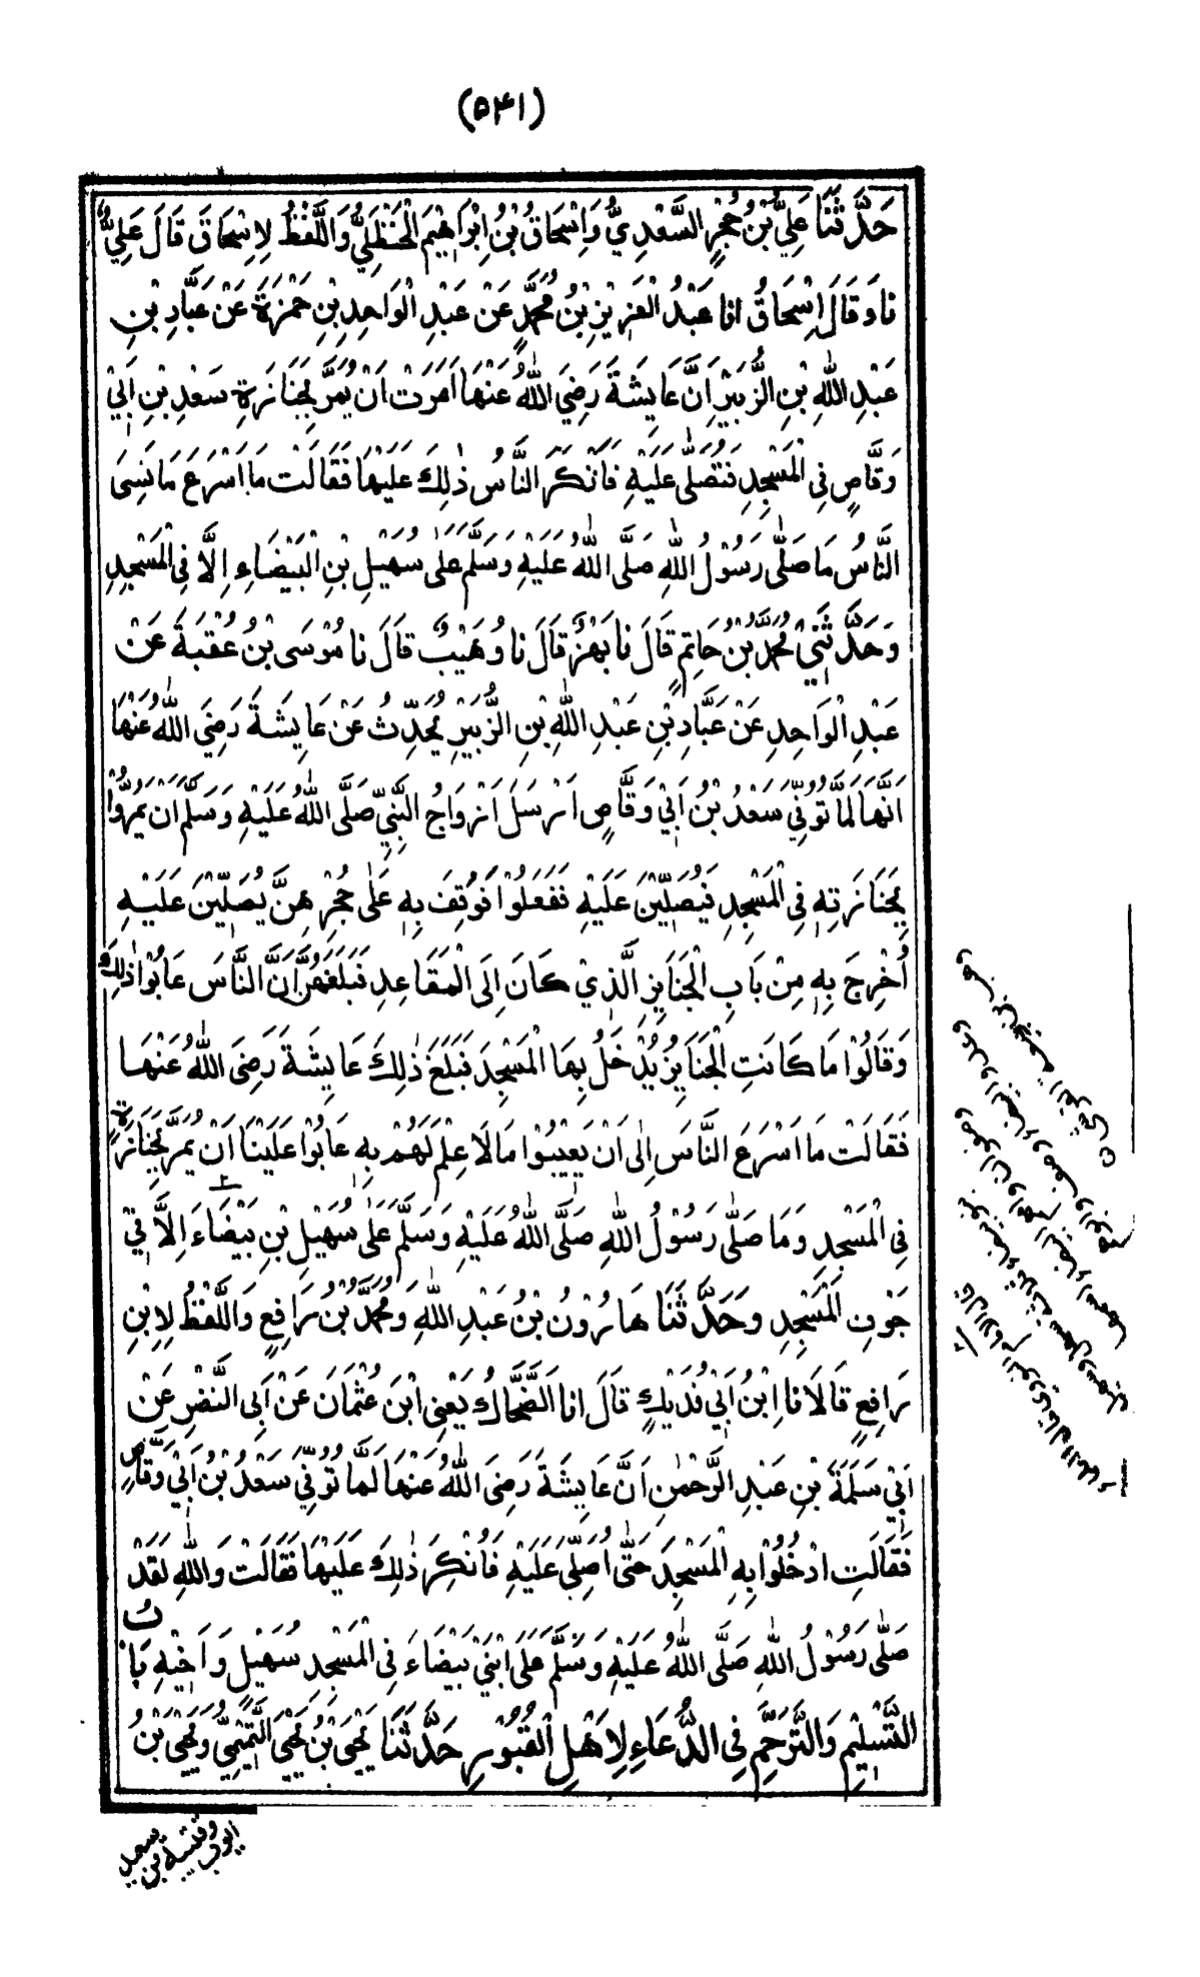 (۵۴۱)
حَدَّثَنَا عَلِيُّ بْنُ حُجْرٍ السَّعْدِيُّ وَاِسْحَاقُ بْنُ اِبْرَاهِيْمَ الْحَنْظَلِيُّ وَاللَّفْظُ لِاِسْحَاقَ قَالَ عَلِيٌّ
نا وَقَالَ اِسْحَاقُ انا عَبْدُ الْعَزِيْزِ بْنُ مُحَمَّدٍ عَنْ عَبْدِ الْوَاحِدِ بْنِ حَمْزَةَ عَنْ عَبَّادِ بْنِ
عَبْدِ اللّٰهِ بْنِ الزُّبَيْرِ اَنَّ عَايِشَةَ رَضِيَ اللّٰهُ عَنْهَا اَمَرَتْ اَنْ يُمَرَّ بِجَنَازَةِ سَعْدِ بْنِ اَبِيْ
وَقَّاصٍ فِي الْمَسْجِدِ فَتُصَلّٰى عَلَيْهِ فَاَنْكَرَ النَّاسُ ذٰلِكَ عَلَيْهَا فَقَالَتْ مَا اَسْرَعَ مَا نَسِىَ
النَّاسُ مَا صَلّٰى رَسُوْلُ اللّٰهِ صَلَّى اللّٰهُ عَلَيْهِ وَسَلَّمَ عَلٰى سُهَيْلِ بْنِ الْبَيْضَاءِ اِلَّا فِي الْمَسْجِدِ
وَحَدَّثَنِيْ مُحَمَّدُ بْنُ حَاتِمٍ قَالَ نا بَهْزٌ قَالَ نا وُهَيْبٌ قَالَ نا مُوْسَى بْنُ عُقْبَةَ عَنْ
عَبْدِ الْوَاحِدِ عَنْ عَبَّادِ بْنِ عَبْدِ اللّٰهِ بْنِ الزُّبَيْرِ يُحَدِّثُ عَنْ عَايِشَةَ رَضِيَ اللّٰهُ عَنْهَا
اَنَّهَا لَمَّا تُوُفِّيَ سَعْدُ بْنُ اَبِيْ وَقَّاصٍ اَرْسَلَ اَزْوَاجُ النَّبِيِّ صَلَّى اللّٰهُ عَلَيْهِ وَسَلَّمَ اَنْ يَمُرُّوْا
بِجَنَازَتِهٖ فِي الْمَسْجِدِ فَيُصَلِّيْنَ عَلَيْهِ فَفَعَلُوْا فَوُقِفَ بِهٖ عَلٰى حُجَرِهِنَّ يُصَلِّيْنَ عَلَيْهِ
اُخْرِجَ بِهٖ مِنْ بَابِ الْجَنَايِزِ الَّذِيْ كَانَ اِلَى الْمَقَاعِدِ فَبَلَغَهُنَّ اَنَّ النَّاسَ عَابُوْا ذٰلِكَ
وَقَالُوْا مَا كَانَتِ الْجَنَايِزُ يُدْخَلُ بِهَا الْمَسْجِدَ فَبَلَغَ ذٰلِكَ عَايِشَةَ رَضِىَ اللّٰهُ عَنْهَا
فَقَالَتْ مَا اَسْرَعَ النَّاسَ اِلٰى اَنْ يَعِيْبُوْا مَا لَا عِلْمَ لَهُمْ بِهٖ عَابُوْا عَلَيْنَا اَنْ يُمَرَّ بِجَنَازَةٍ
فِي الْمَسْجِدِ وَمَا صَلّٰى رَسُوْلُ اللّٰهِ صَلَّى اللّٰهُ عَلَيْهِ وَسَلَّمَ عَلٰى سُهَيْلِ بْنِ بَيْضَاءَ اِلَّا فِيْ
جَوْفِ الْمَسْجِدِ وَحَدَّثَنَا هَارُوْنُ بْنُ عَبْدِ اللّٰهِ وَمُحَمَّدُ بْنُ رَافِعٍ وَاللَّفْظُ لِابْنِ
رَافِعٍ قَالَا نا اِبْنُ اَبِيْ فُدَيْكٍ قَالَ انا الضَّحَّاكُ يَعْنِى ابْنَ عُثْمَانَ عَنْ اَبِى النَّضْرِ عَنْ
اَبِيْ سَلَمَةَ بْنِ عَبْدِ الرَّحْمٰنِ اَنَّ عَايِشَةَ رَضِىَ اللّٰهُ عَنْهَا لَمَّا تُوُفِّيَ سَعْدُ بْنُ اَبِيْ وَقَّاصٍ
فَقَالَتِ ادْخُلُوْا بِهِ الْمَسْجِدَ حَتّٰى اُصَلِّيَ عَلَيْهِ فَاُنْكِرَ ذٰلِكَ عَلَيْهَا فَقَالَتْ وَاللّٰهِ لَقَدْ
صَلّٰى رَسُوْلُ اللّٰهِ صَلَّى اللّٰهُ عَلَيْهِ وَسَلَّمَ عَلَى ابْنَيْ بَيْضَاءَ فِي الْمَسْجِدِ سُهَيْلٍ وَاَخِيْهِ بَابُ
التَّسْلِيْمِ وَالتَّرَحُّمِ فِي الدُّعَاءِ لِاَهْلِ الْقُبُوْرِ حَدَّثَنَا يَحْيَى بْنُ يَحْيَى التَّمِيْمِيُّ وَيَحْيَى بْنُ
ايوب وقتيبة بن سعيد
قال الامام النووي قال العلماء
بنو بيضاء ثلاثة سهل وسهيل
وصفوان وامهم البيضاء اسمها
دعد والبيضاء وصف وابوهم
وهب بن ربيعة القرشي